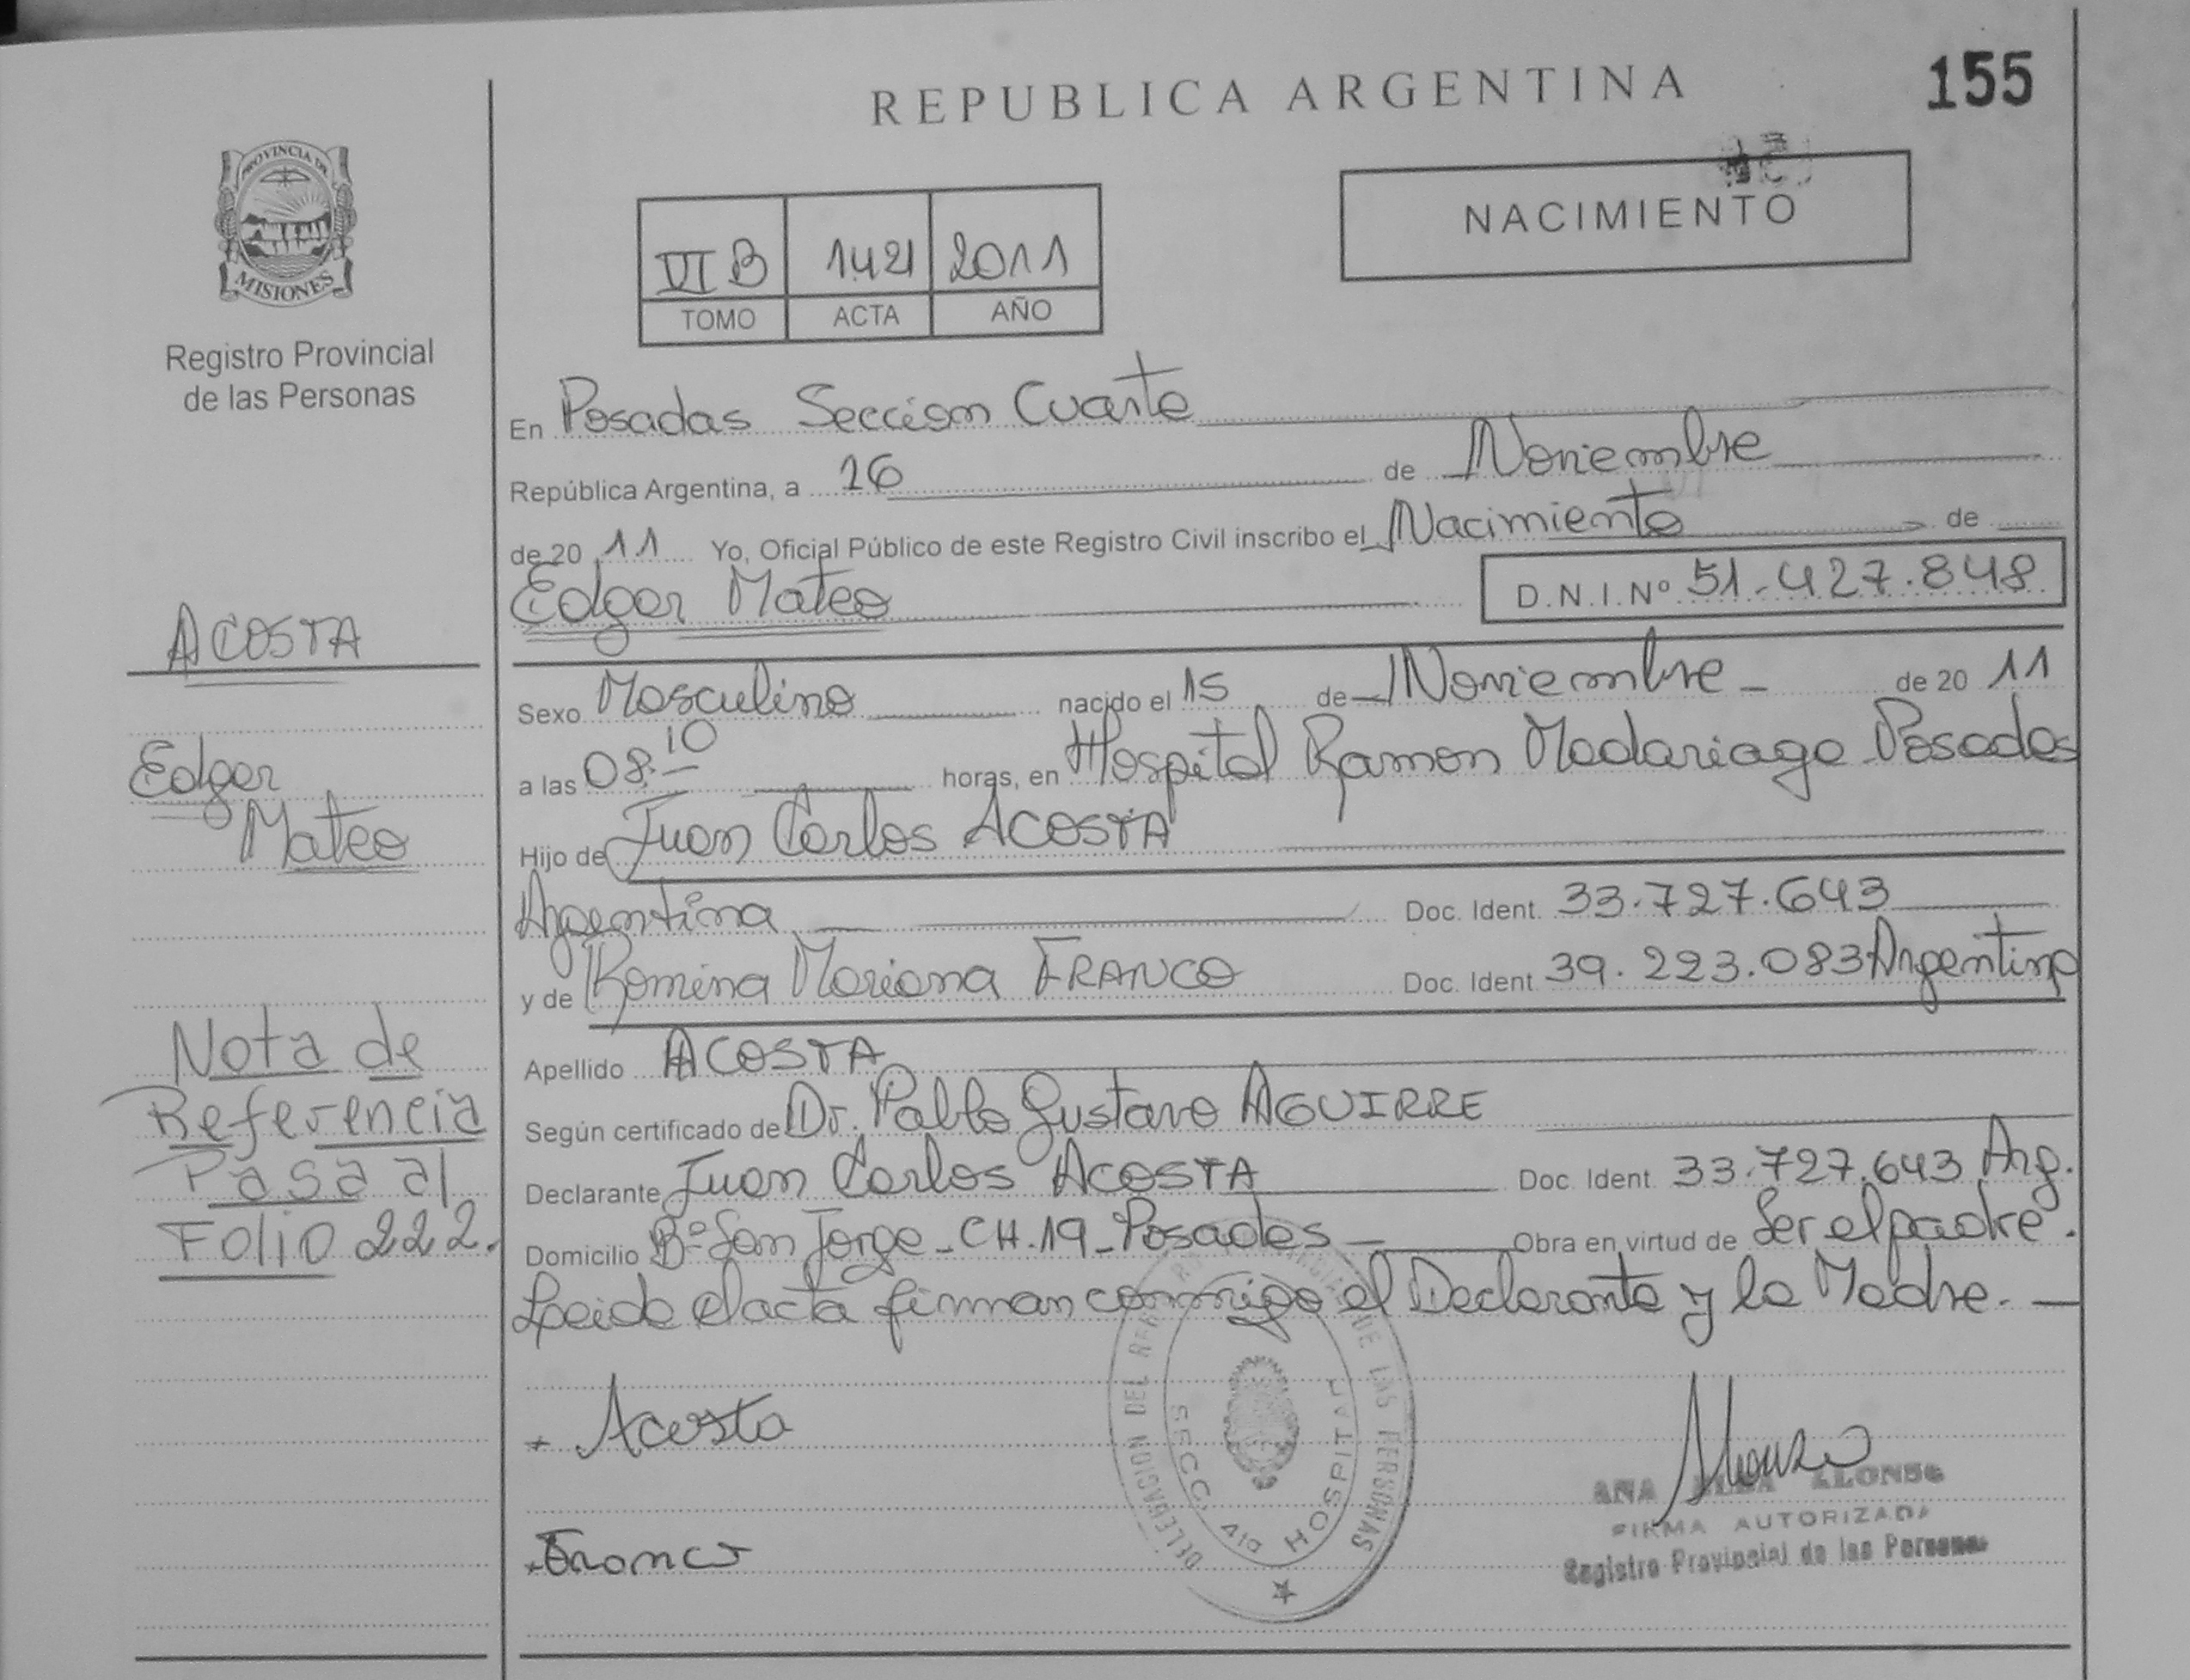 REPUBLICA ARGENTINA
155
PROVINCIA DE
MISIONES
Registro Provincial
de las Personas
NACIMIENTO
VI B 1421 2011
TOMO ACTA AÑO
En Posadas Seccion Cuarta
República Argentina, a 16 de Noviembre
de 20 11 Yo, Oficial Público de este Registro Civil inscribo el Nacimiento de
Edgar Mateo D.N.I.Nº 51.427.848
ACOSTA
Sexo Masculino nacido el 15 de Noviembre - de 20 11
Edgar
Mateo
a las 08.10 horas, en Hospital Ramon Madariaga Posadas
Hijo de Juan Carlos ACOSTA
Argentina Doc. Ident. 33.727.643
y de Romina Mariana FRANCO Doc. Ident. 39.223.083 Argentina
Nota de
Referencia
Pasa al
Folio 222.
Apellido ACOSTA
Según certificado de Dr. Pablo Gustavo AGUIRRE
Declarante Juan Carlos ACOSTA Doc. Ident. 33.727.643 Arg.
Domicilio Bº San Jorge - CH.19 - Posadas - Obra en virtud de Ser el padre.
Leida el acta firman conmigo el Declarante y la Madre. -
Acosta
Franco
DELEGACION DEL DE LAS PERSONAS
SECC. 4ta HOSPITAL
ANA ALONSO
FIRMA AUTORIZADA
Registro Provincial de las Personas